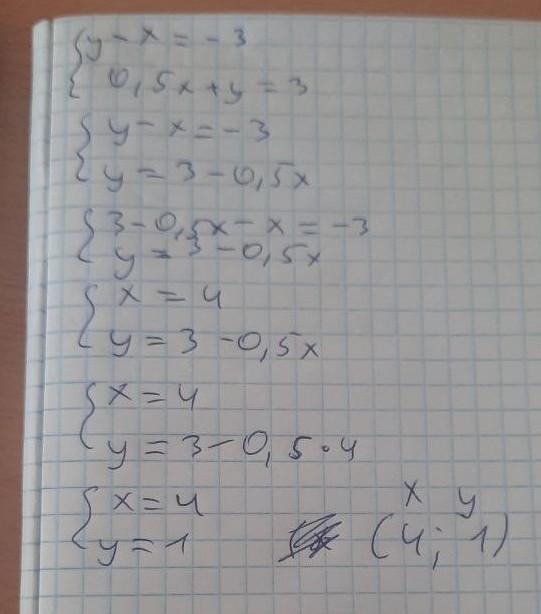 y - x = - 3
0,5x + y = 3
y - x = - 3
y = 3 - 0,5x
3 - 0,5x - x = - 3
y = 3 - 0,5x
x = 4
y = 3 - 0,5x
x = 4
y = 3 - 0,5 · 4
x = 4
y = 1
x y
(4; 1)